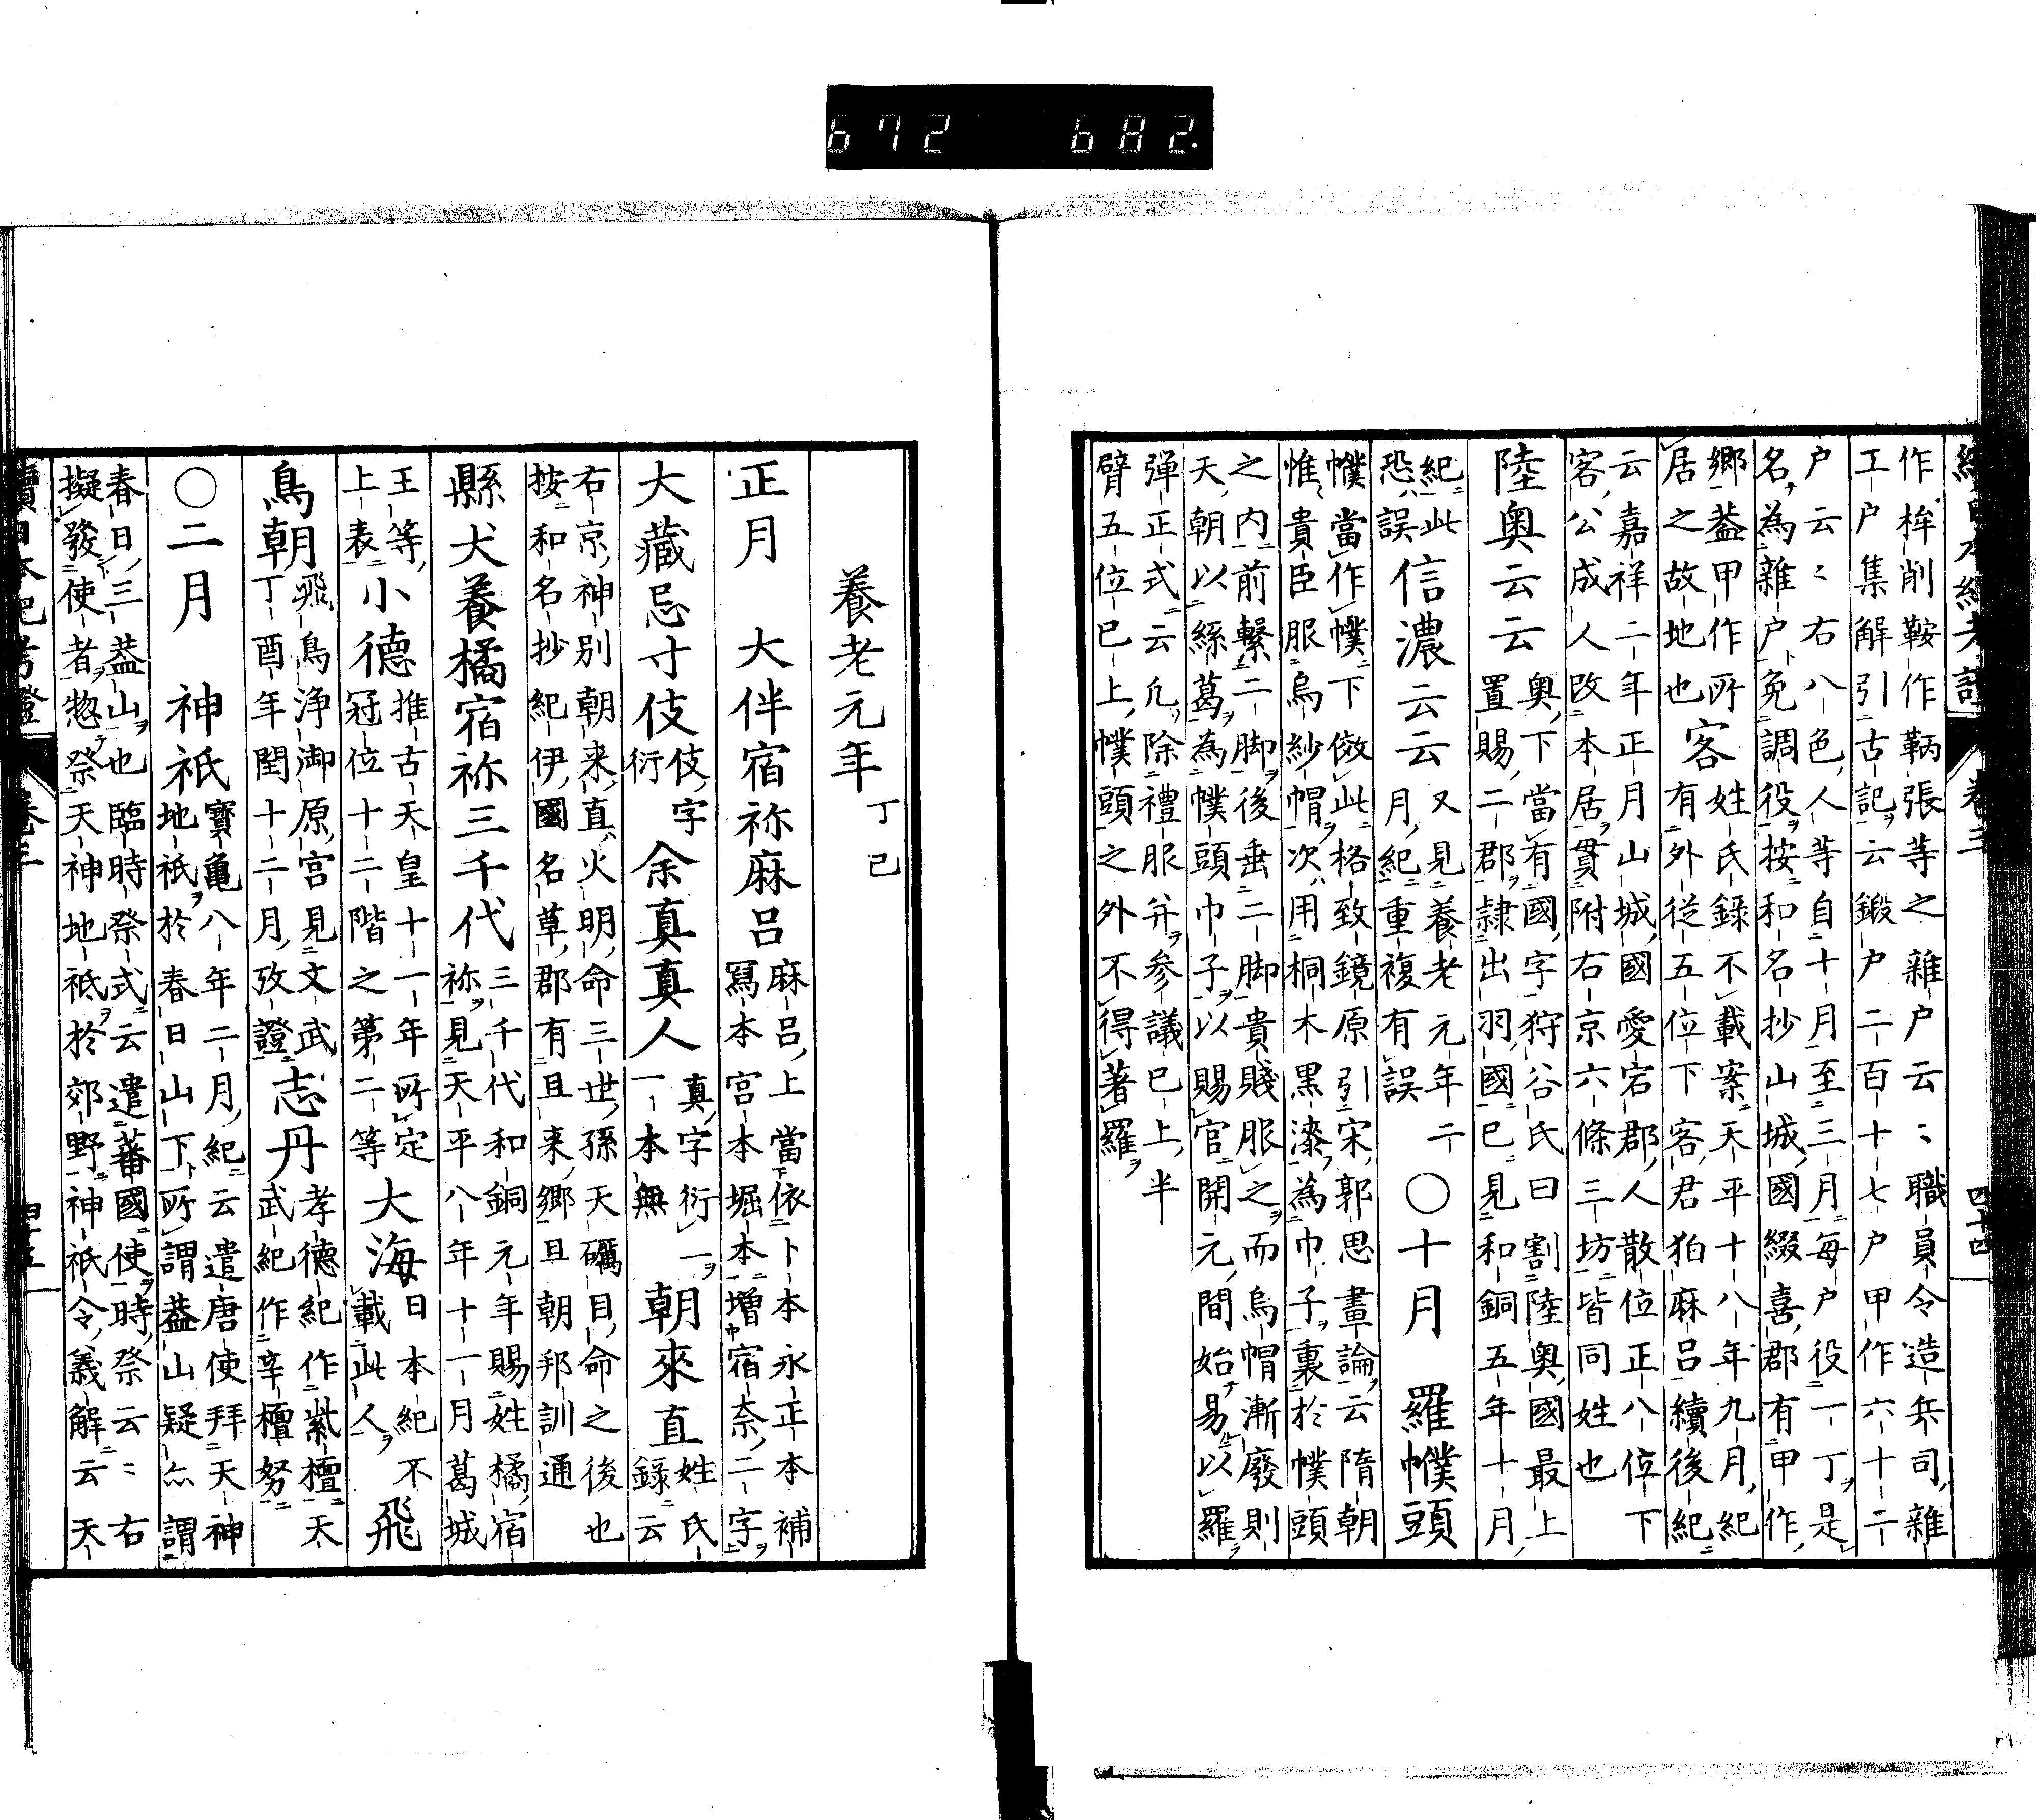 672 682.
續日本紀考證 卷三 四十四
作桙削鞍作鞆張等之雜户云〻職員令造兵司雜
工户集解引古記云鍛户二百十七户甲作六十二
户云〻右八色人等自十月至三月每户役一丁是
名為雜户免調役按和名抄山城國綴喜郡有甲作
鄉葢甲作所
居之故地也
客
姓氏錄不載案天平十八年九月紀
有外從五位下客君狛麻呂續後紀
云嘉祥二年正月山城國愛宕郡人散位正八位下
客公成人改本居貫附右京六條三坊皆同姓也
陸奥云云
奥下當有國字狩谷氏曰割陸奥國最上
置賜二郡隷出羽國已見和銅五年十月
紀此
恐誤
信濃云云
又見養老元年二
月紀重複有誤
○十月 羅幞頭
幞當作幞下倣此格致鏡原引宋郭思畫論云隋朝
惟貴臣服烏紗帽次用桐木黑漆為巾子裏於幞頭
之内前繫二脚後垂二脚貴賤服之而烏帽漸廢則
天朝以絲葛為幞頭巾子以賜官開元間始易以羅
弾正式云凡除禮服并參議已上半
臂五位已上幞頭之外不得著羅
養老元年 丁巳
正月 大伴宿祢麻呂
麻呂上當依卜本永正本補
寫本宮本堀本増宿奈二字
大藏忌寸伎
伎字
衍
余真真人
真字衍一
一本無
朝來直
姓氏
錄云
右京神別朝来直火明命三世孫天礪目命之後也
按和名抄紀伊國名草郡有且来鄉且朝邦訓通
縣犬養橘宿祢三千代
三千代和銅元年賜姓橘宿
祢見天平八年十一月葛城
王等
上表
小德
推古天皇十一年所定
冠位十二階之第二等
大海
日本紀不
載此人
飛
鳥朝
飛鳥浄御原宮見文武
丁酉年閏十二月攷證
志丹
孝德紀作紫檀天
武紀作辛檀努
○二月 神祇
寶亀八年二月紀云遣唐使拜天神
地祇於春日山下所謂葢山疑亦謂
春日三葢山也臨時祭式云遣蕃國使時祭云〻右
擬發使者惣祭天神地祇於郊野神祇令義解云天
續日本紀考證 卷三 四十五